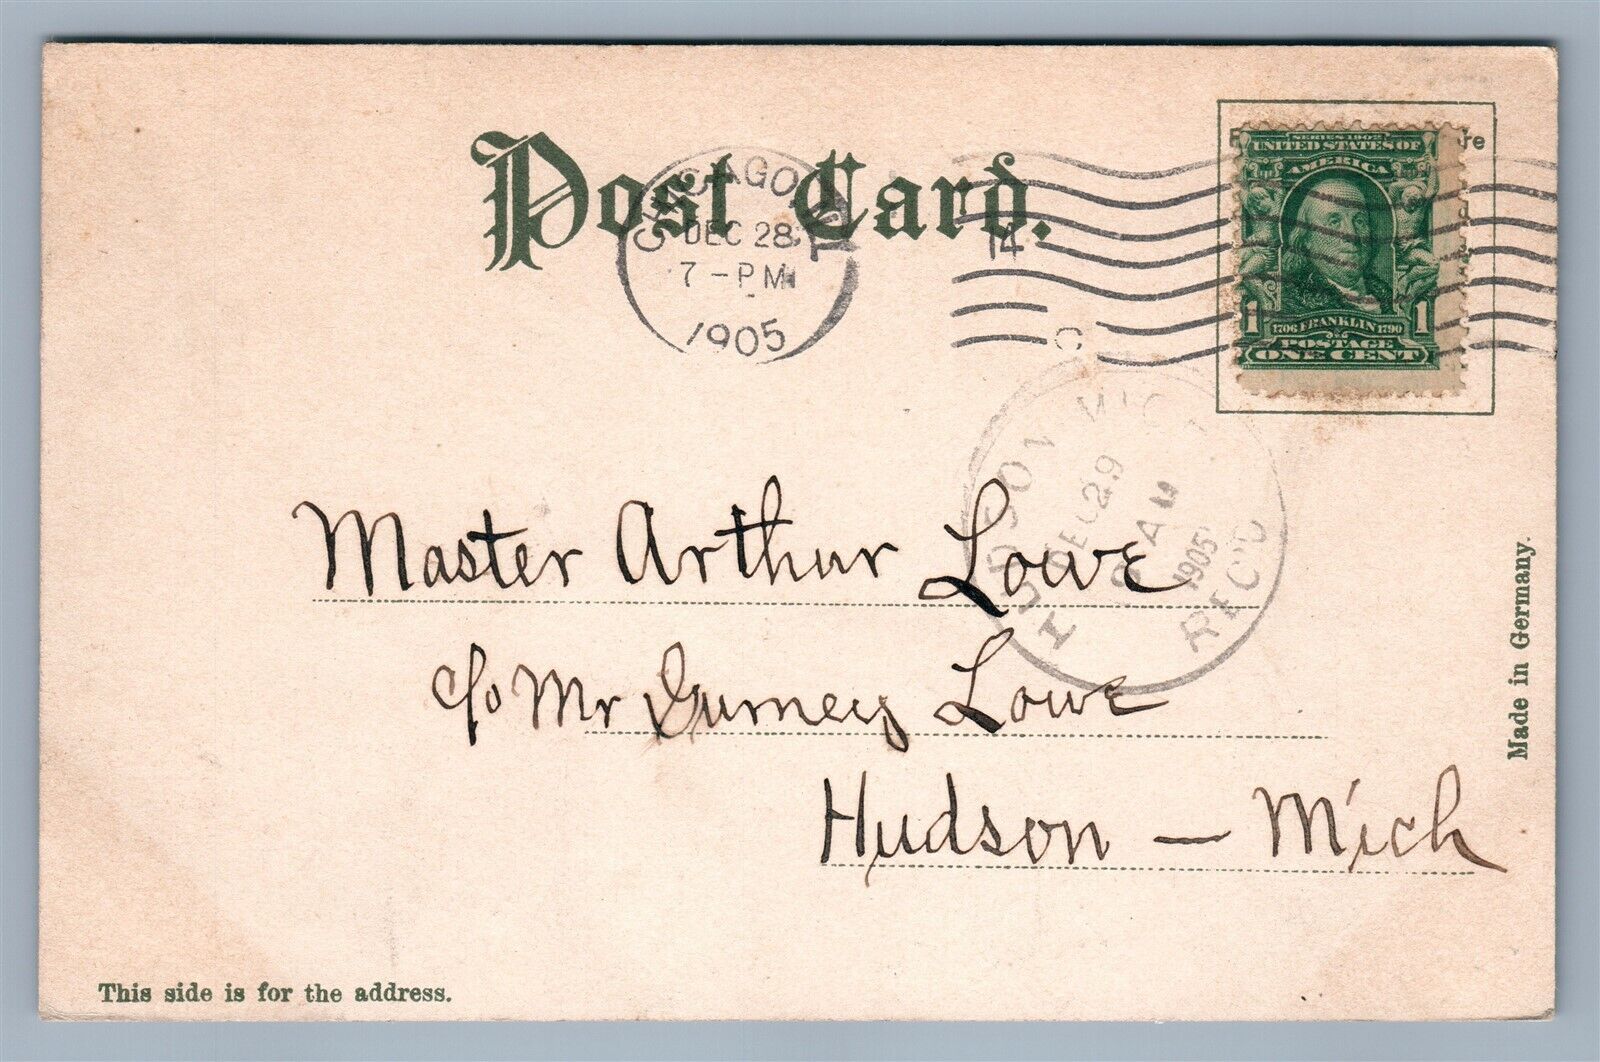 Post Card.
CHICAGO
DEC 28
7 - PM
1905
14
C
re
SERIES 1902
UNITED STATES OF
AMERICA
1 1706 FRANKLIN 1790 1
POSTAGE
ONE CENT
HUDSON MICH
DEC 29
AM
1905
REC'D
Master Arthur Lowe
c/o Mr Lowe
Hudson — Mich
Made in Germany.
This side is for the address.